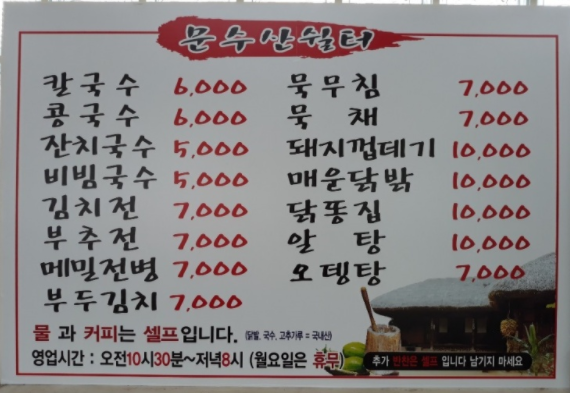 문수산쉼터
칼국수 6,000
콩국수 6,000
잔치국수 5,000
비빔국수 5,000
김치전 7,000
부추전 7,000
메밀전병 7,000
부두김치 7,000
묵무침 7,000
묵채 7,000
돼지껍데기 10,000
매운닭밝 10,000
닭똥집 10,000
알탕 10,000
오뎅탕 7,000
물과 커피는 셀프입니다. (닭발, 국수, 고추가루 = 국내산)
영업시간 : 오전10시30분~저녁8시 (월요일은 휴무)
추가 반찬은 셀프 입니다 남기지 마세요